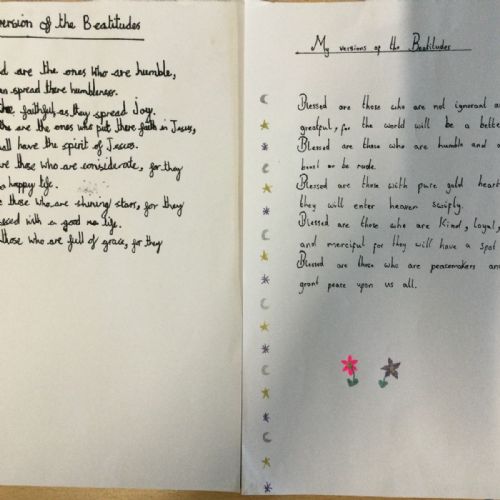 version of the Beatitudes
are the ones who are humble,
can spread there humbleness.
the faithful, as they spread Joy.
are the ones who put there faith in Jesus,
shall have the spirit of Jesus.
are those who are considerate, for they
a happy life.
those who are shining stars, for they
with a good life.
those who are full of grace, for they
My versions of the Beatitudes
Blessed are those who are not ignorant
greatful, for the world will be a
Blessed are those who are humble and
boast or be rude.
Blessed are those with pure gold
they will enter heaven swiftly.
Blessed are those who are kind, loyal,
and merciful for they will have a spot
Blessed are those who are peacemakers
grant peace upon us all.